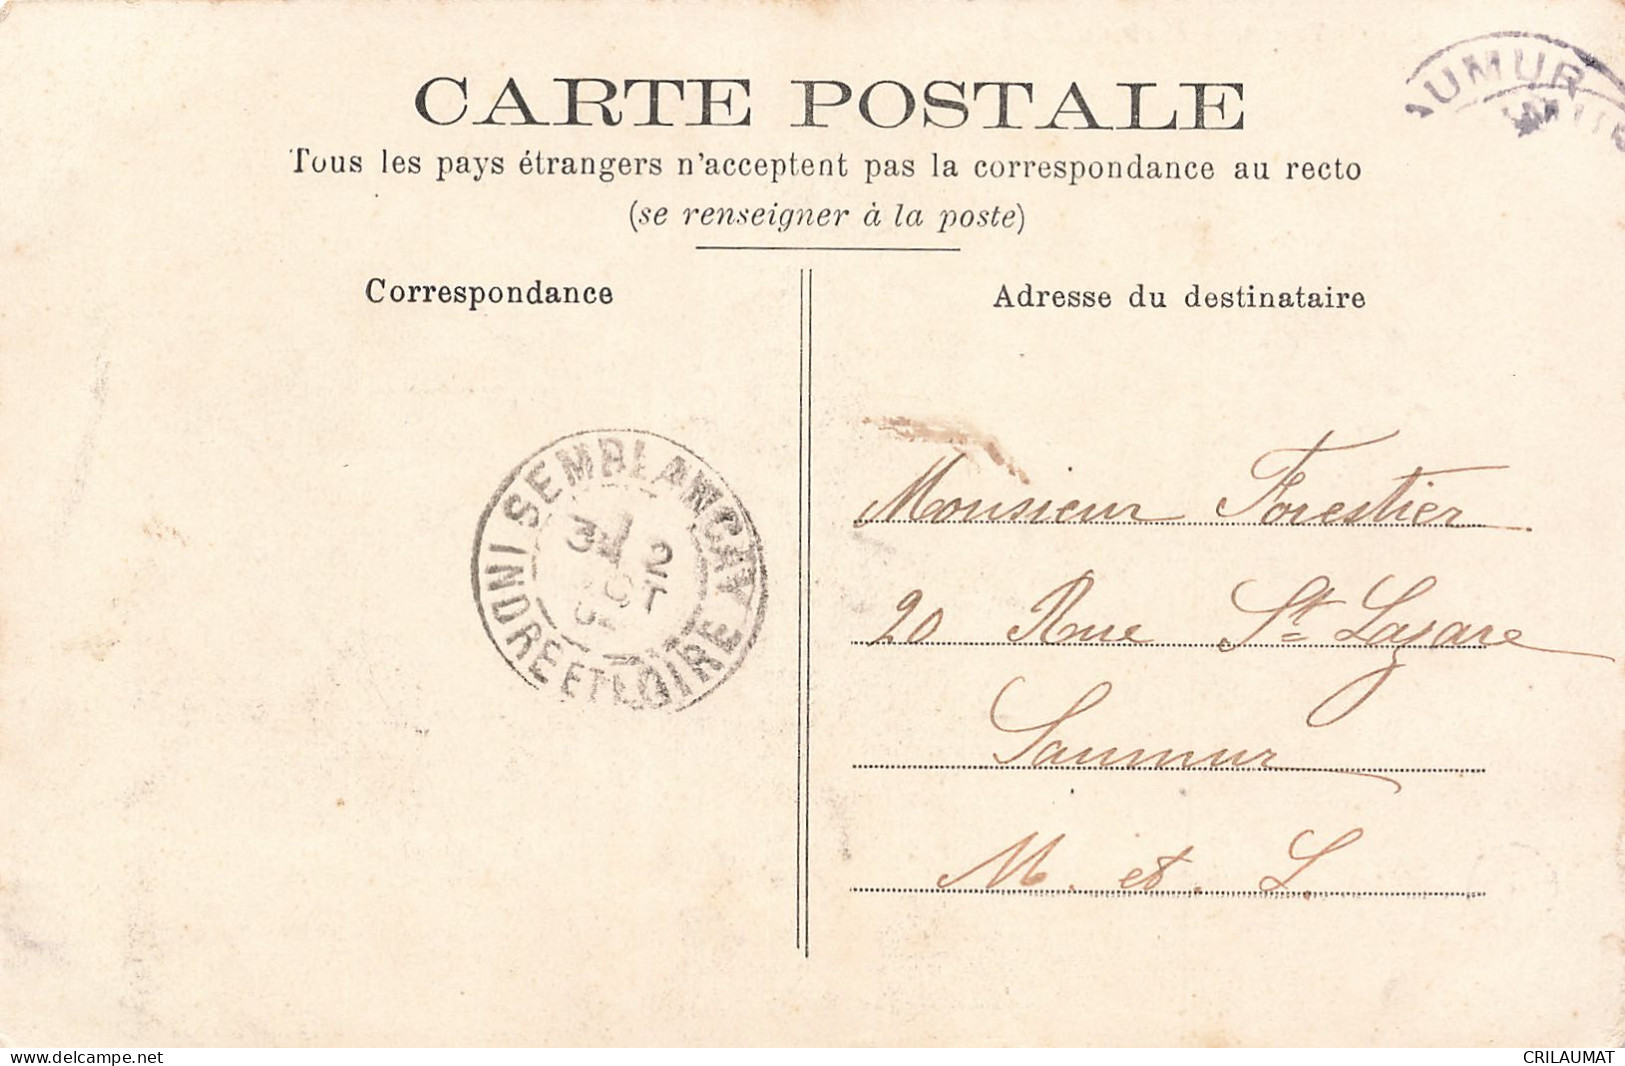 CARTE POSTALE
Tous les pays étrangers n'acceptent pas la correspondance au recto
(se renseigner à la poste)
Correspondance
Adresse du destinataire
AUMUR
SEMBLANCAY
INDRE ET LOIRE
Monsieur Forestier
20 Rue St. Lazare
Saumur
M. et. L.
delcampe.net
CRILAUMAT